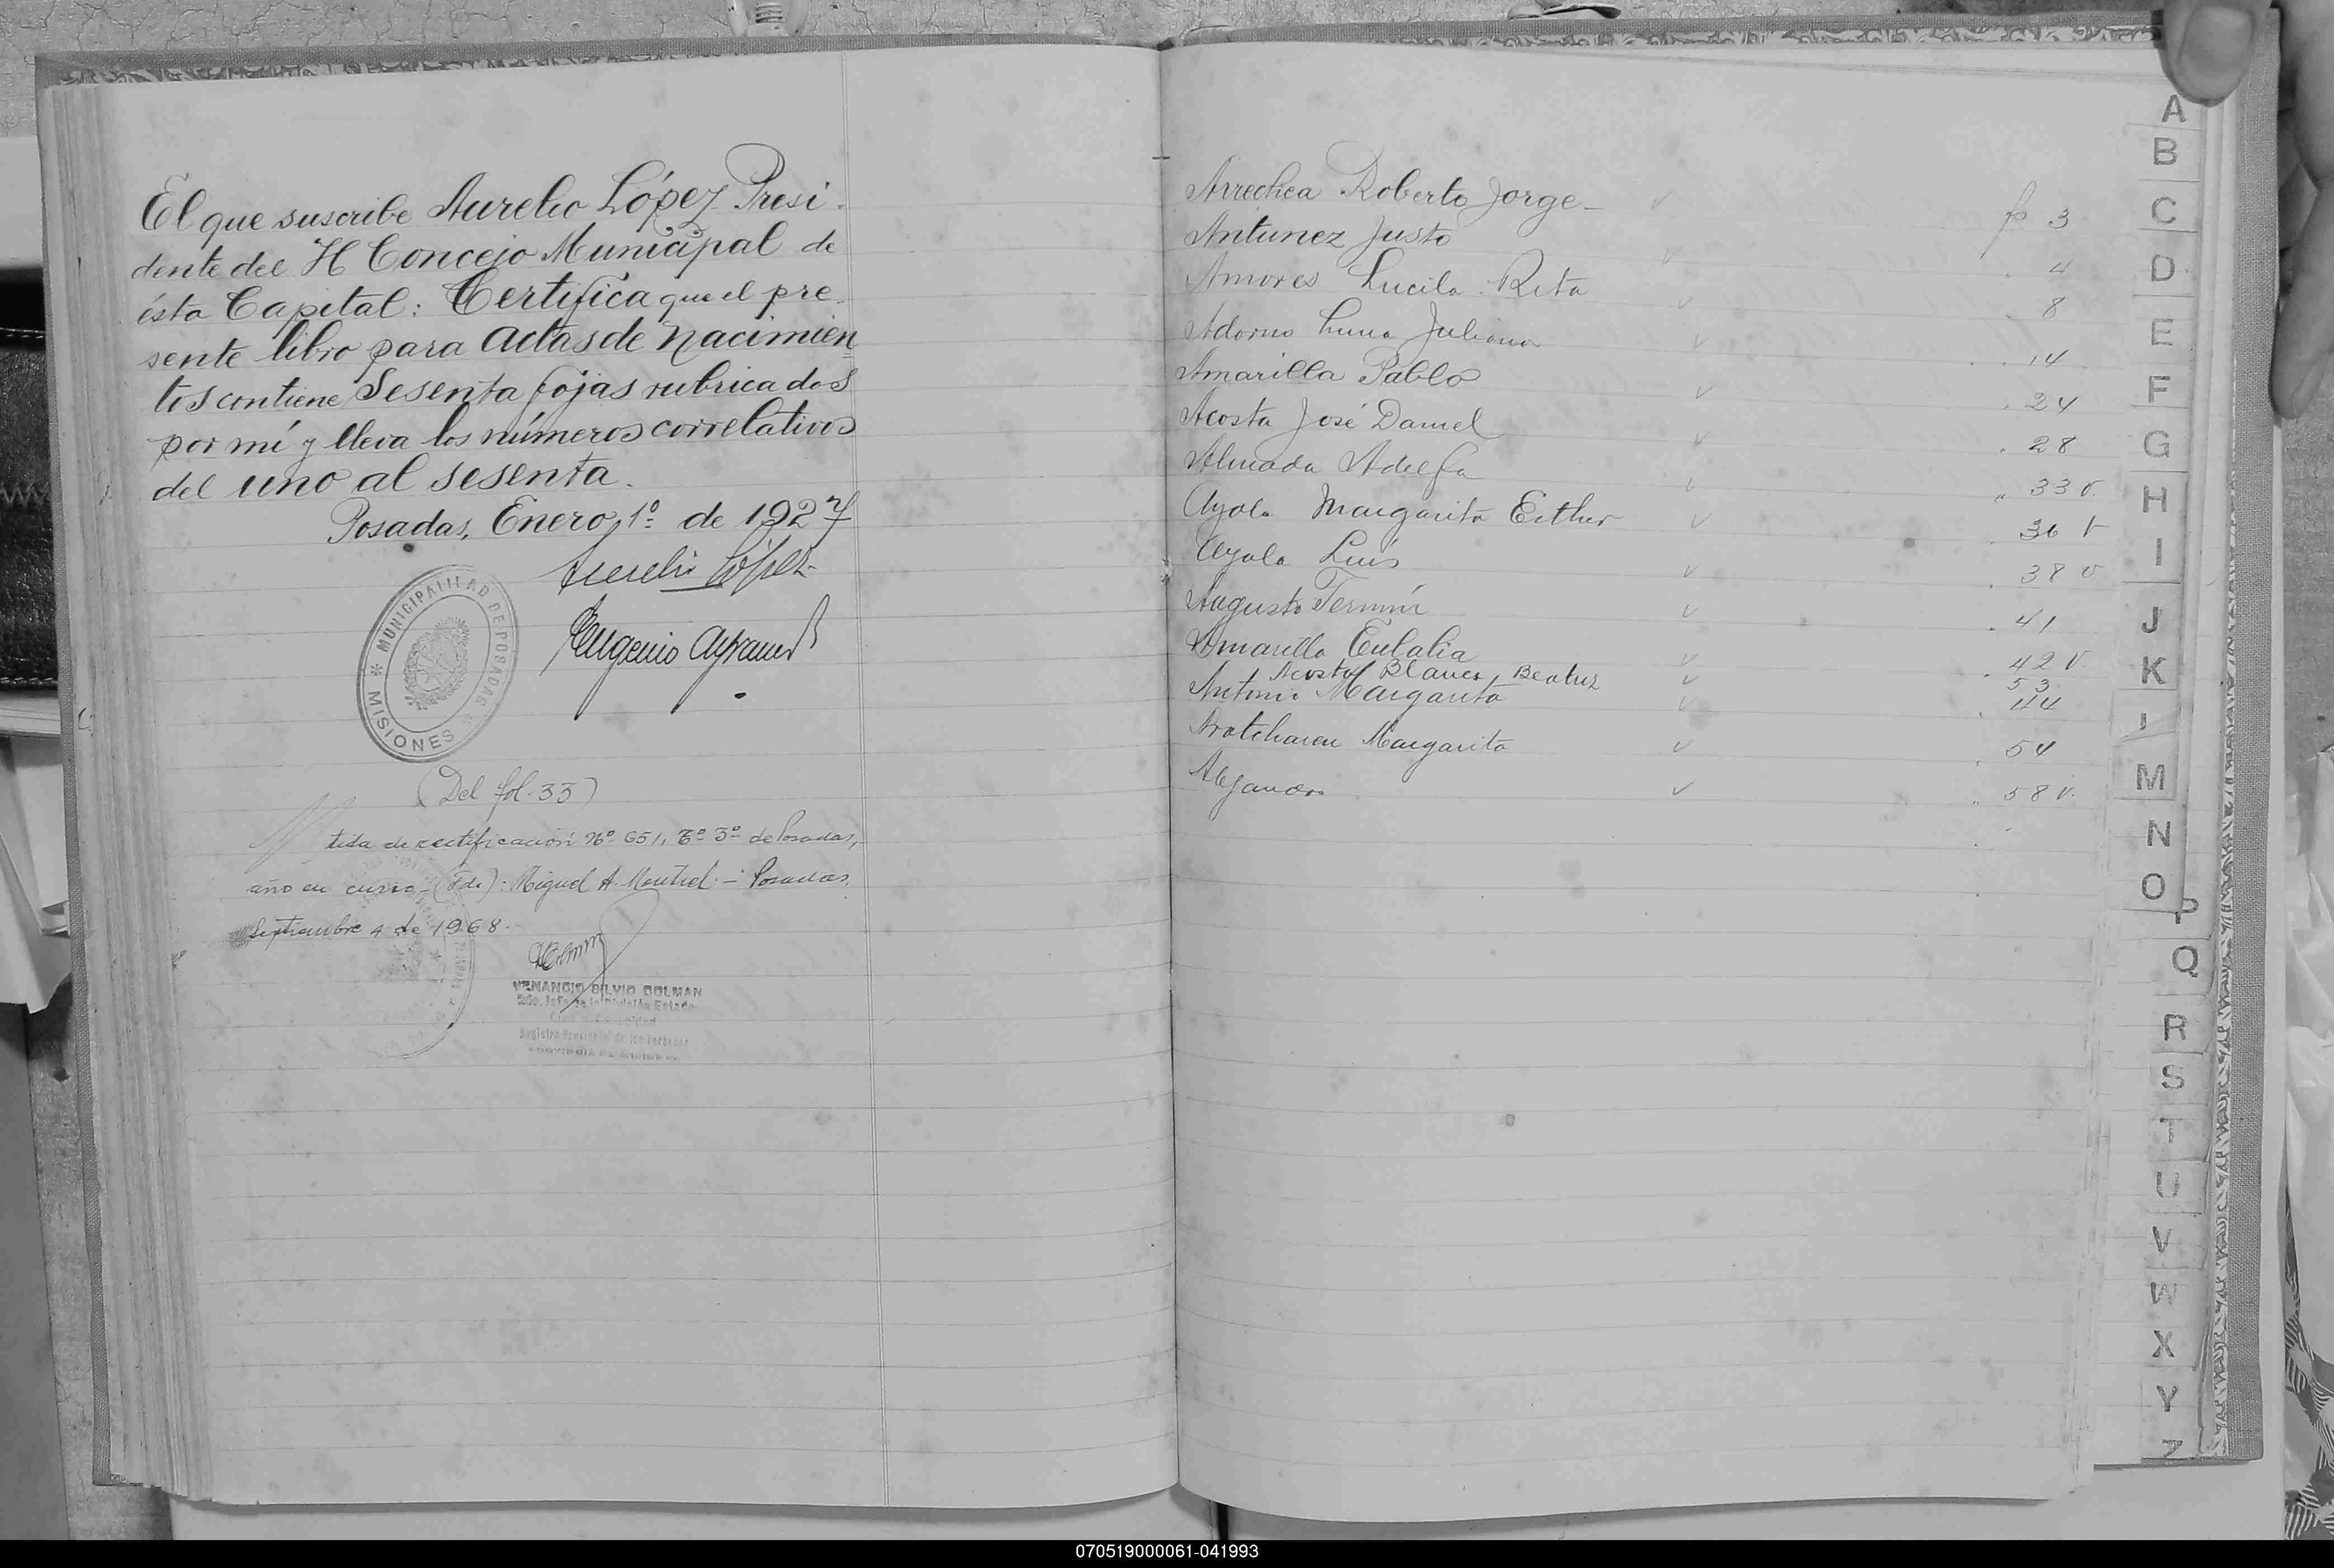 El que suscribe Aurelio López Presi-
dente del H Concejo Municipal de
ésta Capital: Certifica que el pre-
sente libro para Actas de Nacimien
tos contiene Sesenta fojas rubricados
por mí y lleva los números correlativos
del uno al sesenta.
Posadas, Enero 1º de 1927
Aurelio López
Eugenio
MUNICIPALIDAD DE POSADAS
* MISIONES *
(Del fol. 33)
tida de rectificación Nº 651, Tº 3º de Posadas,
año en curso - (Fdo): Miguel A. Montiel. - Posadas,
Septiembre 4 de 1968.
VENANCIO SILVIO DOLMAN
2do. Jefe de la División Estado
Registro Provincial de las Personas
Arrechea Roberto Jorge - fo 3
Antunez Justo " 4
Amores Lucila Rita " 8
Adorno Luna Juliana " 14
Amarilla Pablo " 24
Acosta José Daniel " 28
Almada Adelfa " 33 v.
Ayala Margarita Esther 36 v
Ayala Luis " 38 v
Augusto Fermín " 41
Amarilla Eulalia " 42 v.
Acosta Blanca Beatriz 53
Antonio Margarita " 44
Margarita " 54
Alejandro " 58 v.
A
B
C
D
E
F
G
H
I
J
K
M
N
O
P
Q
R
S
T
U
V
W
X
Y
Z
070519000061-041993